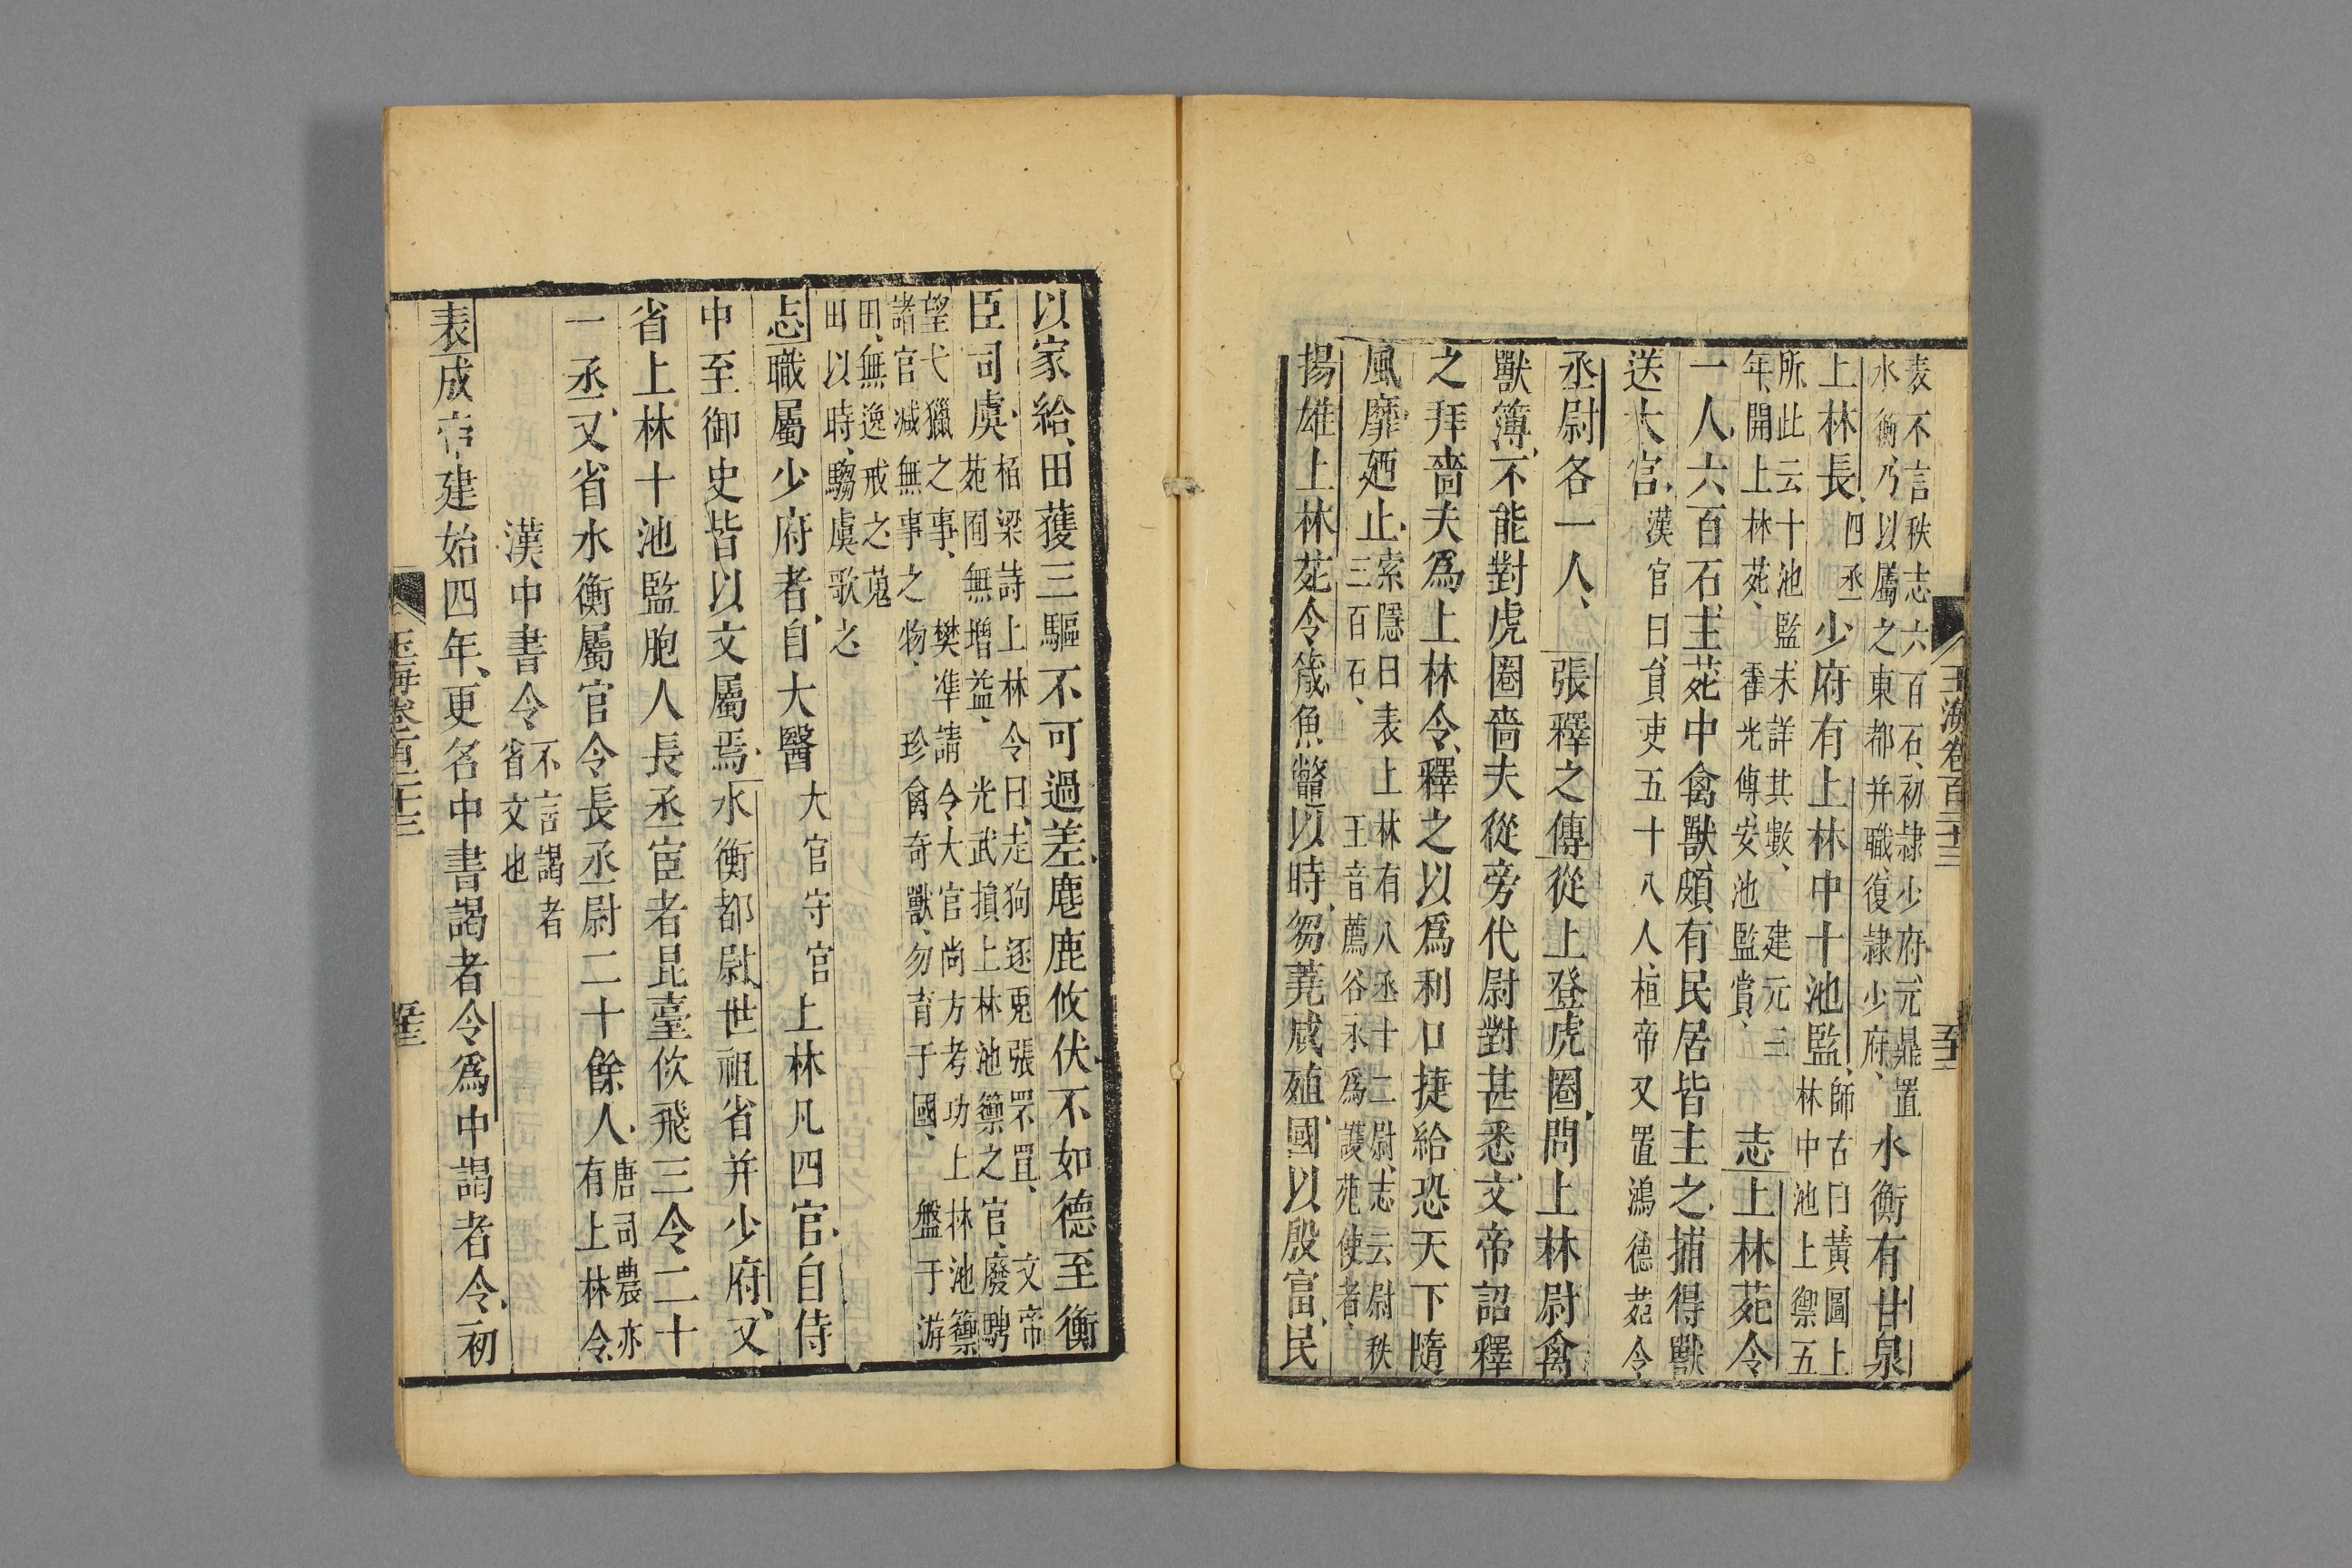 表不言秩志六百石初隷少府元鼎置
水衡乃以屬之東都并職復隷少府
水衡有甘泉
上林長
四丞
少府有上林中十池監
師古曰黃圖上
林中池上禦五
所此云十池監未詳其數
建元三
年開上林苑
霍光傳安池監賞
志上林苑令
一人六百石主苑中禽獸頗有民居皆主之捕得獸
送大官
漢官曰員吏五十八人桓帝又置鴻德苑令
丞尉各一人
張釋之傳從上登虎圈問上林尉禽
獸簿不能對虎圈嗇夫從旁代尉對甚悉文帝詔釋
之拜嗇夫爲上林令釋之以爲利口捷給恐天下隨
風靡廼止
索隱曰表上林有八丞十二尉志云尉秩
三百石
王音薦谷永爲護苑使者
揚雄上林苑令箴魚鼈以時芻蕘咸殖國以殷富民
玉海卷百二十三
以家給田獲三驅不可過差麀鹿攸伏不如德至衡
臣司虞
栢梁詩上林令曰走狗逐兎張罘罝
文帝
苑囿無增益
光武損上林池籞之官廢騁
望弋獵之事
樊準請令大官尚方考功上林池籞
諸官減無事之物
珍禽奇獸勿育于國
盤于游
田無逸戒之蒐
田以時騶虞歌之
志職屬少府者自大醫大官守官上林凡四官自侍
中至御史皆以文屬焉水衡都尉世祖省并少府又
省上林十池監胞人長丞宦者昆臺佽飛三令二十
一丞又省水衡屬官令長丞尉二十餘人
唐司農亦
有上林令
漢中書令
不言謁者
省文也
表成帝建始四年更名中書謁者令爲中謁者令初
玉海卷百二十三